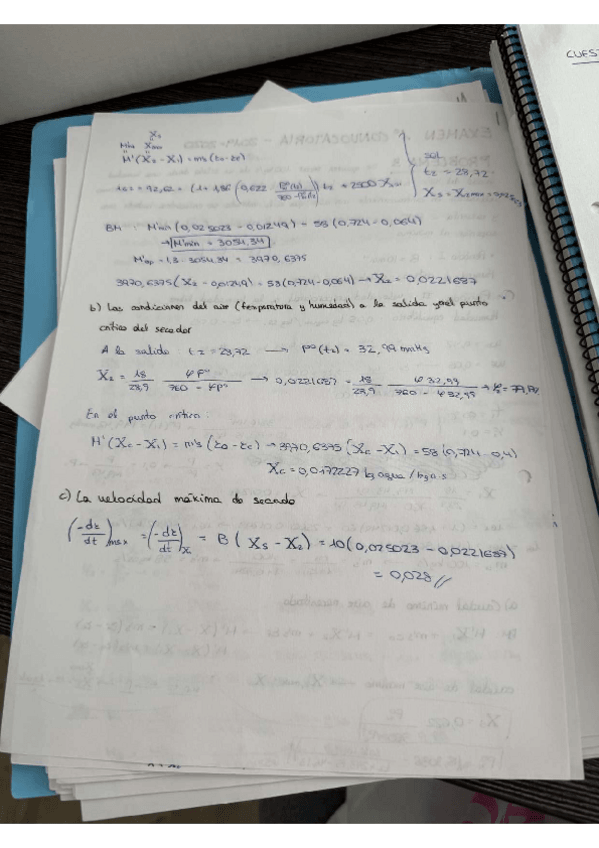 CUES
Xs
Mmin Xmax
M'(X2 - X1) = ms(z0 - zc)
sol
t2 = 28,72
Xs = X2max = 0,025023
BM: M'min (0,025023 - 0,01249) = 58 (0,724 - 0,064)
→ M'min = 3054,34
M'op = 1,3 · 3054,34 = 3970,6375
3970,6375 (X2 - 0,01249) = 58 (0,724 - 0,064) → X2 = 0,0221687
b) Las condiciones del aire (temperatura y humedad) a la salida y en el punto
crítico del secador
A la salida: t2 = 28,72 → Pº(t2) = 32,99 mmHg
X2 = 18/28,9 φPº/760 - φPº → 0,0221687 = 18/28,9 φ 32,99/760 - φ 32,95
En el punto crítico:
M'(Xc - X1) = m's (z0 - zc) → 3970,6375 (Xc - X1) = 58 (0,724 - 0,4)
Xc = 0,0172227 kg agua/kg a.s
c) La velocidad máxima de secado
(-dz/dt)max = (-dz/dt)x = B (Xs - X2) = 10 (0,025023 - 0,0221687)
= 0,028 //